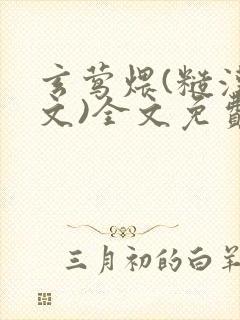 玄莺煨(糙汉
文)全文免费
三月初的白羊